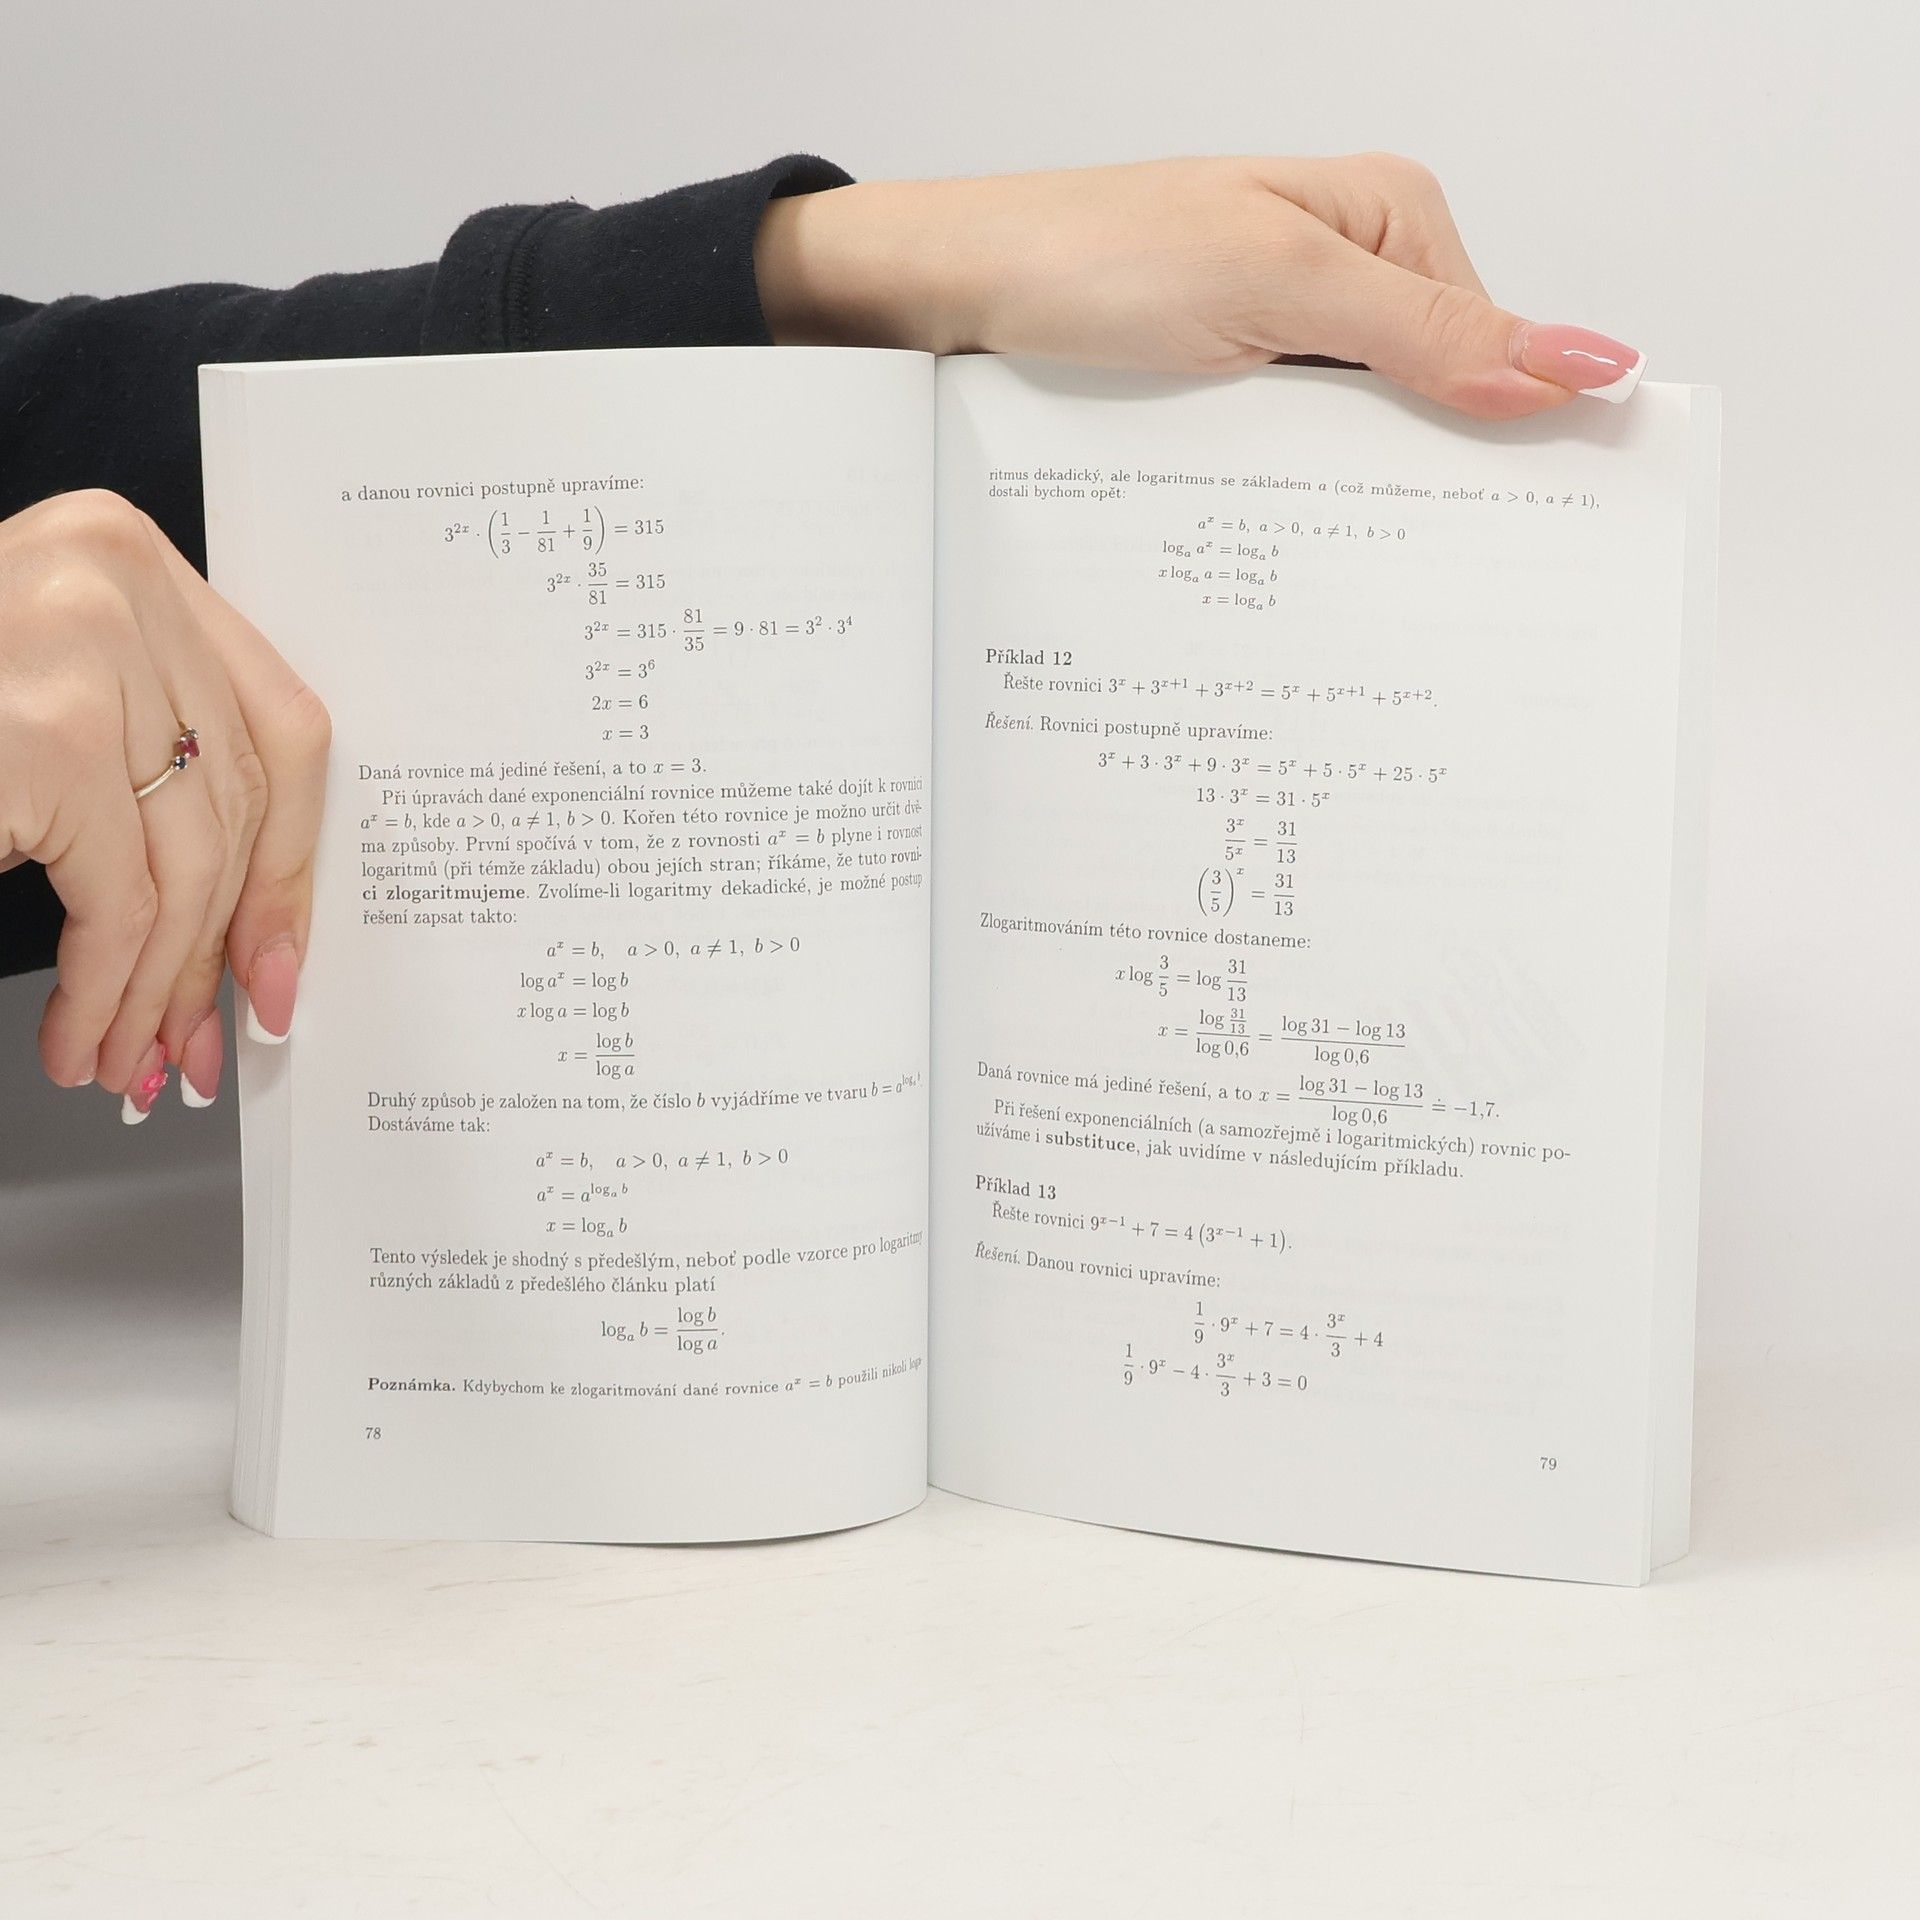 a danou rovnici postupně upravíme:
3^{2x} · (1/3 − 1/81 + 1/9) = 315
3^{2x} · 35/81 = 315
3^{2x} = 315 · 81/35 = 9 · 81 = 3^2 · 3^4
3^{2x} = 3^6
2x = 6
x = 3
Daná rovnice má jediné řešení, a to x = 3.
Při úpravách dané exponenciální rovnice můžeme také dojít k rovnici
a^x = b, kde a > 0, a ≠ 1, b > 0. Kořen této rovnice je možno určit dvě-
ma způsoby. První spočívá v tom, že z rovnosti a^x = b plyne i rovnost
logaritmů (při témže základu) obou jejích stran; říkáme, že tuto rovni-
ci zlogaritmujeme. Zvolíme-li logaritmy dekadické, je možné postup
řešení zapsat takto:
a^x = b, a > 0, a ≠ 1, b > 0
log a^x = log b
x log a = log b
x = log b / log a
Druhý způsob je založen na tom, že číslo b vyjádříme ve tvaru b = a^{log_a b}.
Dostáváme tak:
a^x = b, a > 0, a ≠ 1, b > 0
a^x = a^{log_a b}
x = log_a b
Tento výsledek je shodný s předešlým, neboť podle vzorce pro logaritmy
různých základů z předešlého článku platí
log_a b = log b / log a.
Poznámka. Kdybychom ke zlogaritmování dané rovnice a^x = b použili nikoli loga-
78
ritmus dekadický, ale logaritmus se základem a (což můžeme, neboť a > 0, a ≠ 1),
dostali bychom opět:
a^x = b, a > 0, a ≠ 1, b > 0
log_a a^x = log_a b
x log_a a = log_a b
x = log_a b
Příklad 12
Řešte rovnici 3^x + 3^{x+1} + 3^{x+2} = 5^x + 5^{x+1} + 5^{x+2}.
Řešení. Rovnici postupně upravíme:
3^x + 3 · 3^x + 9 · 3^x = 5^x + 5 · 5^x + 25 · 5^x
13 · 3^x = 31 · 5^x
3^x/5^x = 31/13
(3/5)^x = 31/13
Zlogaritmováním této rovnice dostaneme:
x log 3/5 = log 31/13
x = log 31/13 / log 0,6 = (log 31 − log 13) / log 0,6
Daná rovnice má jediné řešení, a to x = (log 31 − log 13) / log 0,6 ≐ −1,7.
Při řešení exponenciálních (a samozřejmě i logaritmických) rovnic po-
užíváme i substituce, jak uvidíme v následujícím příkladu.
Příklad 13
Řešte rovnici 9^{x−1} + 7 = 4 (3^{x−1} + 1).
Řešení. Danou rovnici upravíme:
1/9 · 9^x + 7 = 4 · 3^x/3 + 4
1/9 · 9^x − 4 · 3^x/3 + 3 = 0
79